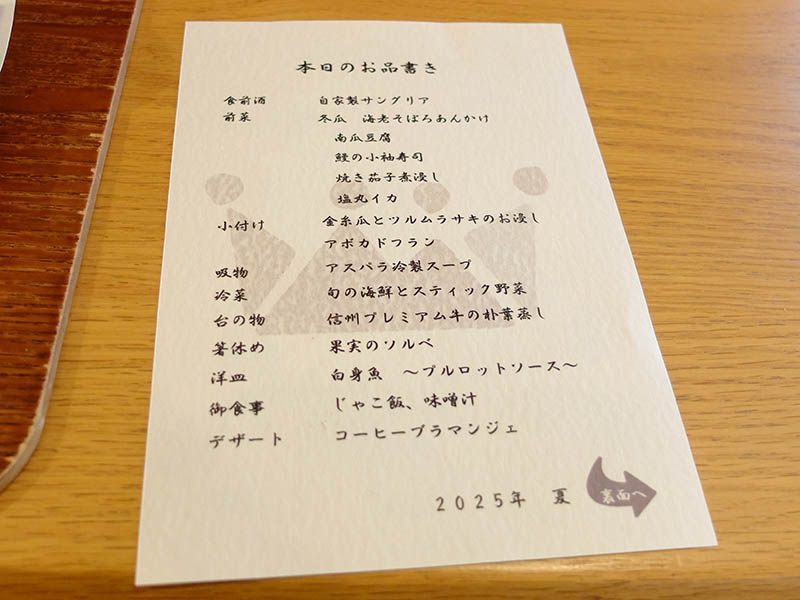 本日のお品書き
食前酒 自家製サングリア
前菜 冬瓜 海老そぼろあんかけ
南瓜豆腐
鰻の小袖寿司
焼き茄子煮浸し
塩丸イカ
小付け 金糸瓜とツルムラサキのお浸し
アボカドフラン
吸物 アスパラ冷製スープ
冷菜 旬の海鮮とスティック野菜
台の物 信州プレミアム牛の朴葉蒸し
箸休め 果実のソルベ
洋皿 白身魚 ～ブルロットソース～
御食事 じゃこ飯、味噌汁
デザート コーヒーブラマンジェ
2025年 夏
裏面へ